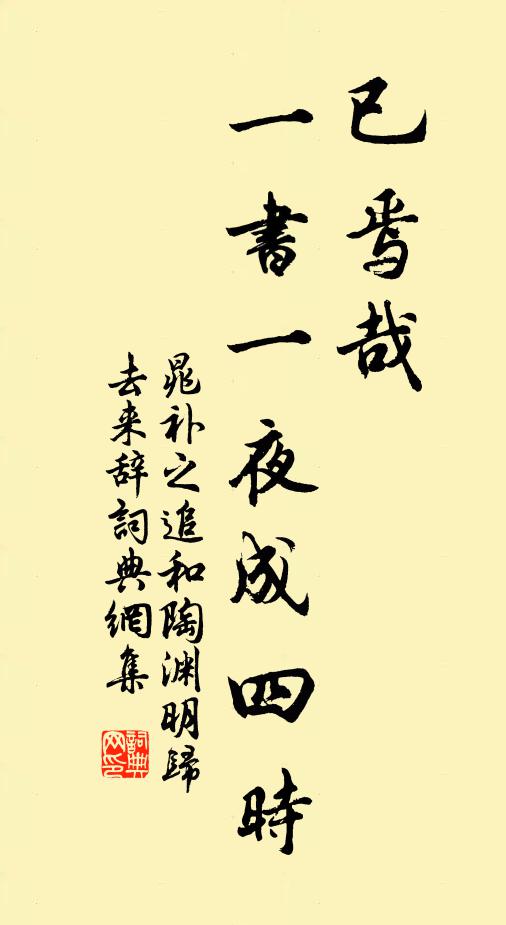 已焉哉
一書一夜成四時
晁补之追和陶渊明歸
去来辞詞典網集
詞典
网印